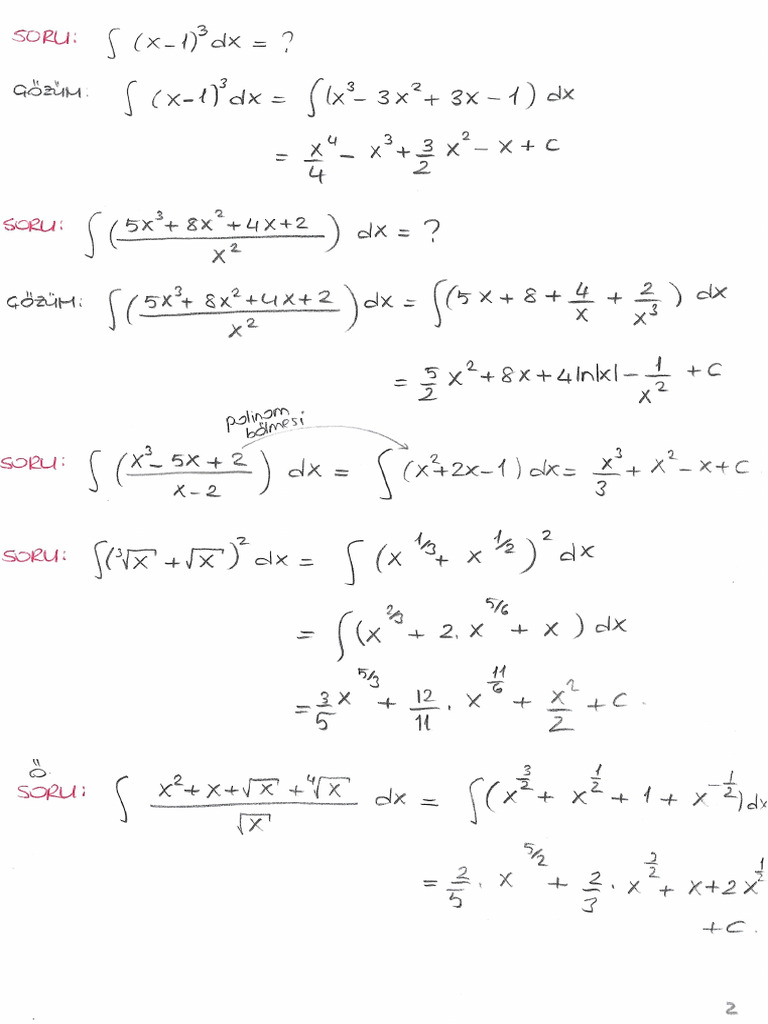 SORU: ∫ (x-1)³ dx = ?
GÖZÜM: ∫ (x-1)³ dx = ∫ (x³ - 3x² + 3x - 1) dx
= x⁴/4 - x³ + 3/2 x² - x + C
SORU: ∫ ( (5x³ + 8x² + 4x + 2) / x² ) dx = ?
GÖZÜM: ∫ ( (5x³ + 8x² + 4x + 2) / x² ) dx = ∫ (5x + 8 + 4/x + 2/x³) dx
= 5/2 x² + 8x + 4 ln|x| - 1/x² + C
polinom
bölmesi
SORU: ∫ ( (x³ - 5x + 2) / (x - 2) ) dx = ∫ (x² + 2x - 1) dx = x³/3 + x² - x + C
SORU: ∫ (³√x + √x)² dx = ∫ (x^1/3 + x^1/2)² dx
= ∫ (x^2/3 + 2. x^5/6 + x) dx
= 3/5 x^5/3 + 12/11 . x^11/6 + x²/2 + C .
Ö.
SORU: ∫ (x² + x + √x + ⁴√x) / √x dx = ∫ (x^3/2 + x^1/2 + 1 + x^-1/2) dx
= 2/5 . x^5/2 + 2/3 . x^2/2 + x + 2x^1/2
+ C .
2